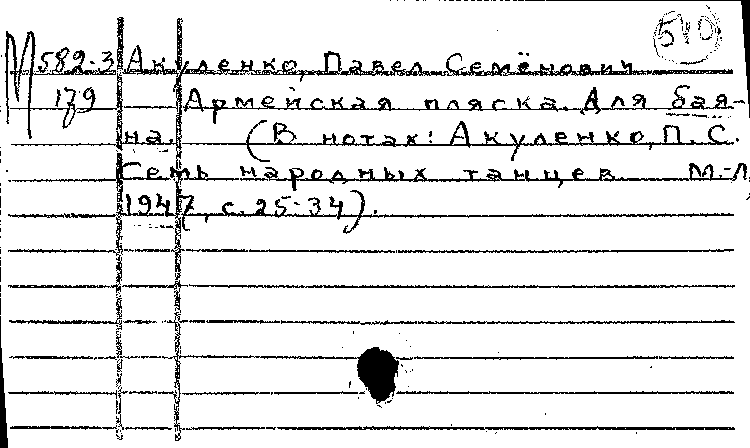 510
М 582-3 Акуленко, Павел Семёнович
179 Армейская пляска. Для бая-
на. (В нотах: Акуленко, П. С.
Семь народных танцев. М.-Л,
1947, с. 25-34).